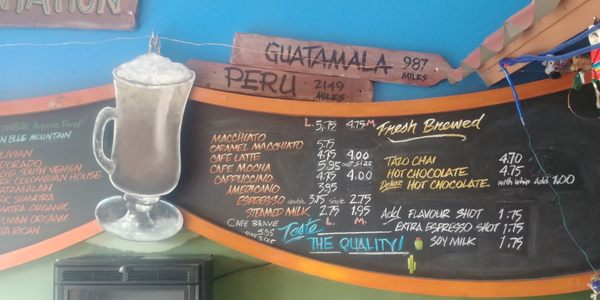 NTATION
GUATAMALA 987 MILES
PERU 2149 MILES
L. M.
MACCHIATO 5.75 4.75
CARAMEL MACCHIATO 5.75
CAFE LATTE 4.75 4.00
CAFE MOCHA 5.95 ONE SIZE
CAPPUCCINO 4.75 4.00
AMERICANO 3.95
ESPRESSO double 3.75 single 2.75
STEAMED MILK 2.75 1.95
L. M.
CAFE BRAVE 5.95
ONE SIZE
Taste THE QUALITY!
Fresh Brewed
TAZO CHAI 4.70
HOT CHOCOLATE 4.75
Deluxe HOT CHOCOLATE with Whip Add 1.00
Add FLAVOUR SHOT 1.75
EXTRA ESPRESSO SHOT 1.75
SOY MILK 1.75
BLUE MOUNTAIN
SOUTH YEMEN
COLOMBIAN HOUSE
SUMATRA
ORGANIC
ORGANIC